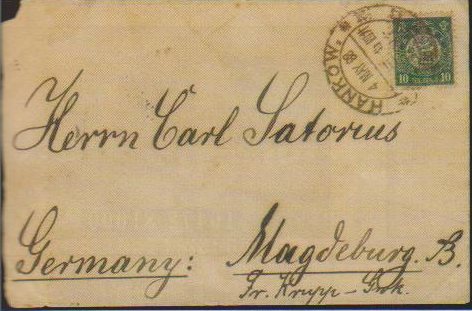 HANKOW.
4 MAY 09
10 10
Herrn Carl Satorius
Germany: Magdeburg. B.
Fr. Krupp –